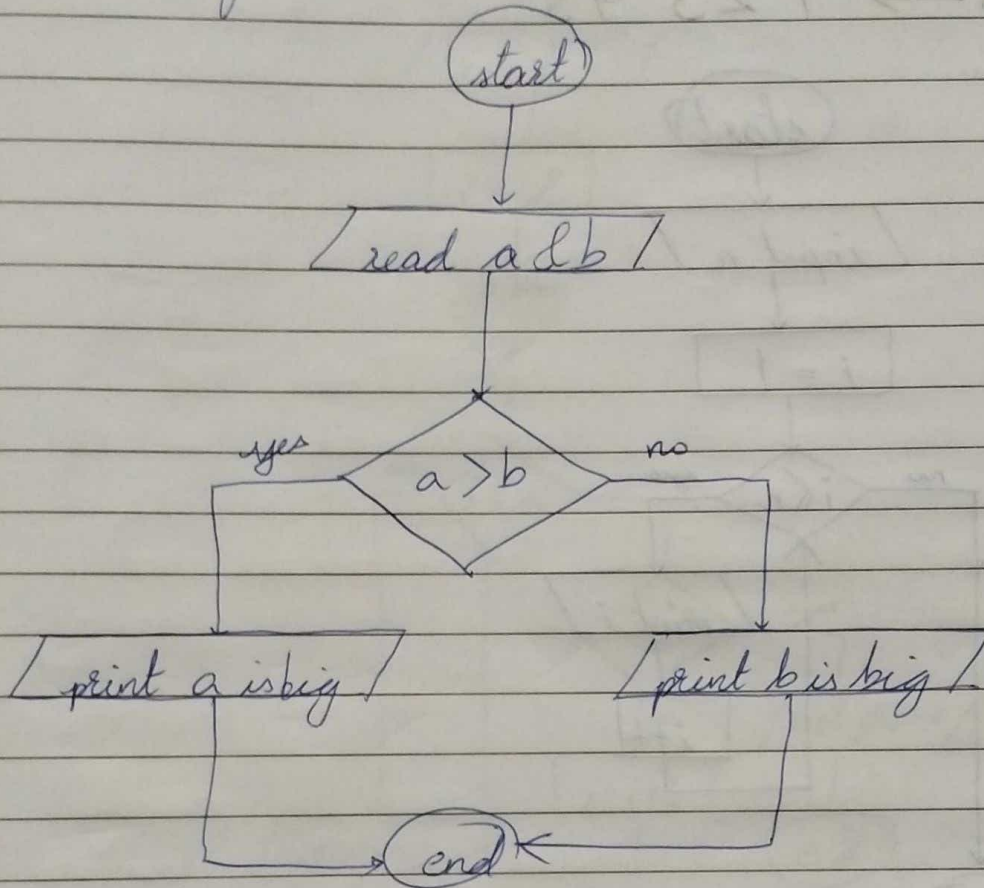 start
read a & b
a > b
yes
no
print a is big
print b is big
end